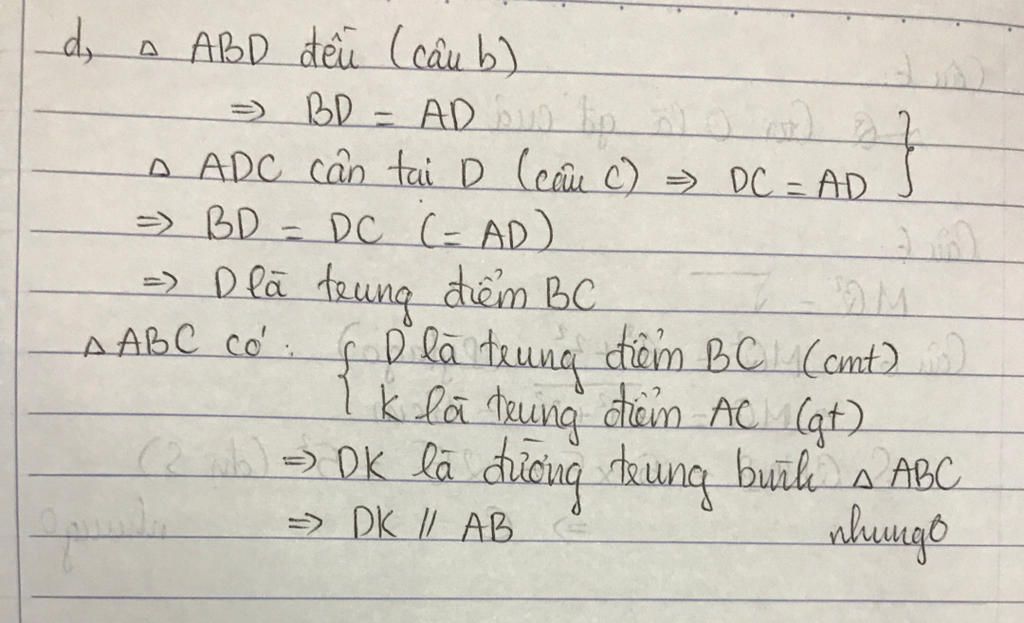 d, △ ABD đều (câu b)
⇒ BD = AD
△ ADC cân tại D (câu c) ⇒ DC = AD }
⇒ BD = DC (= AD)
⇒ D là trung điểm BC
△ ABC có : { D là trung điểm BC (cmt)
K là trung điểm AC (gt)
⇒ DK là đường trung bình △ ABC
⇒ DK // AB
nhung0